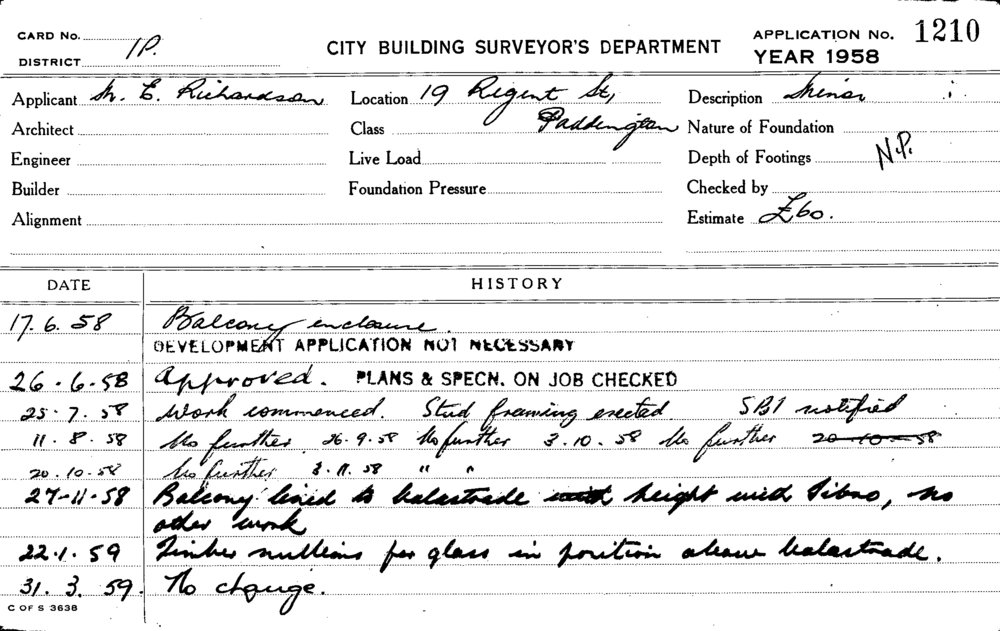 CARD No. APPLICATION No. 1210
1P. CITY BUILDING SURVEYOR'S DEPARTMENT
DISTRICT YEAR 1958
Applicant E. Richardson Location 19 Regent St, Description
Architect Class Paddington Nature of Foundation
Engineer Live Load Depth of Footings N.P.
Builder Foundation Pressure Checked by
Alignment Estimate £60.
DATE HISTORY
17. 6. 58 Balcony enclosure.
DEVELOPMENT APPLICATION NOT NECESSARY
26 . 6 . 58 Approved. PLANS & SPECN. ON JOB CHECKED
25 . 7 . 58 Work commenced. Stud framing erected. SBI notified
11 . 8 . 58 No further 26 . 9 . 58 No further 3 . 10 . 58 No further 20-10-58
20 . 10 . 58 No further 3 . 11 . 58 " "
27-11-58 Balcony lined to balastrade with height with Fibro, no
other work
22.1.59 Timber mullions for glass in position above balastrade.
31. 3. 59. No change.
C OF S 3638